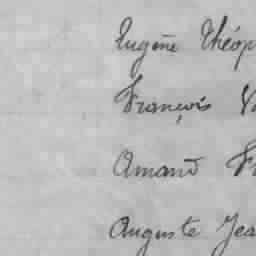 Eugène Théop
François V
Amand Fr
Auguste Jea